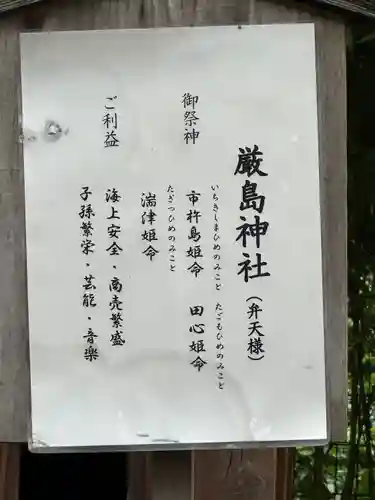 厳島神社（弁天様）
御祭神
いちきしまひめのみこと　たごもひめのみこと
市杵島姫命　田心姫命
たぎつひめのみこと
湍津姫命
ご利益
海上安全・商売繁盛
子孫繁栄・芸能・音楽